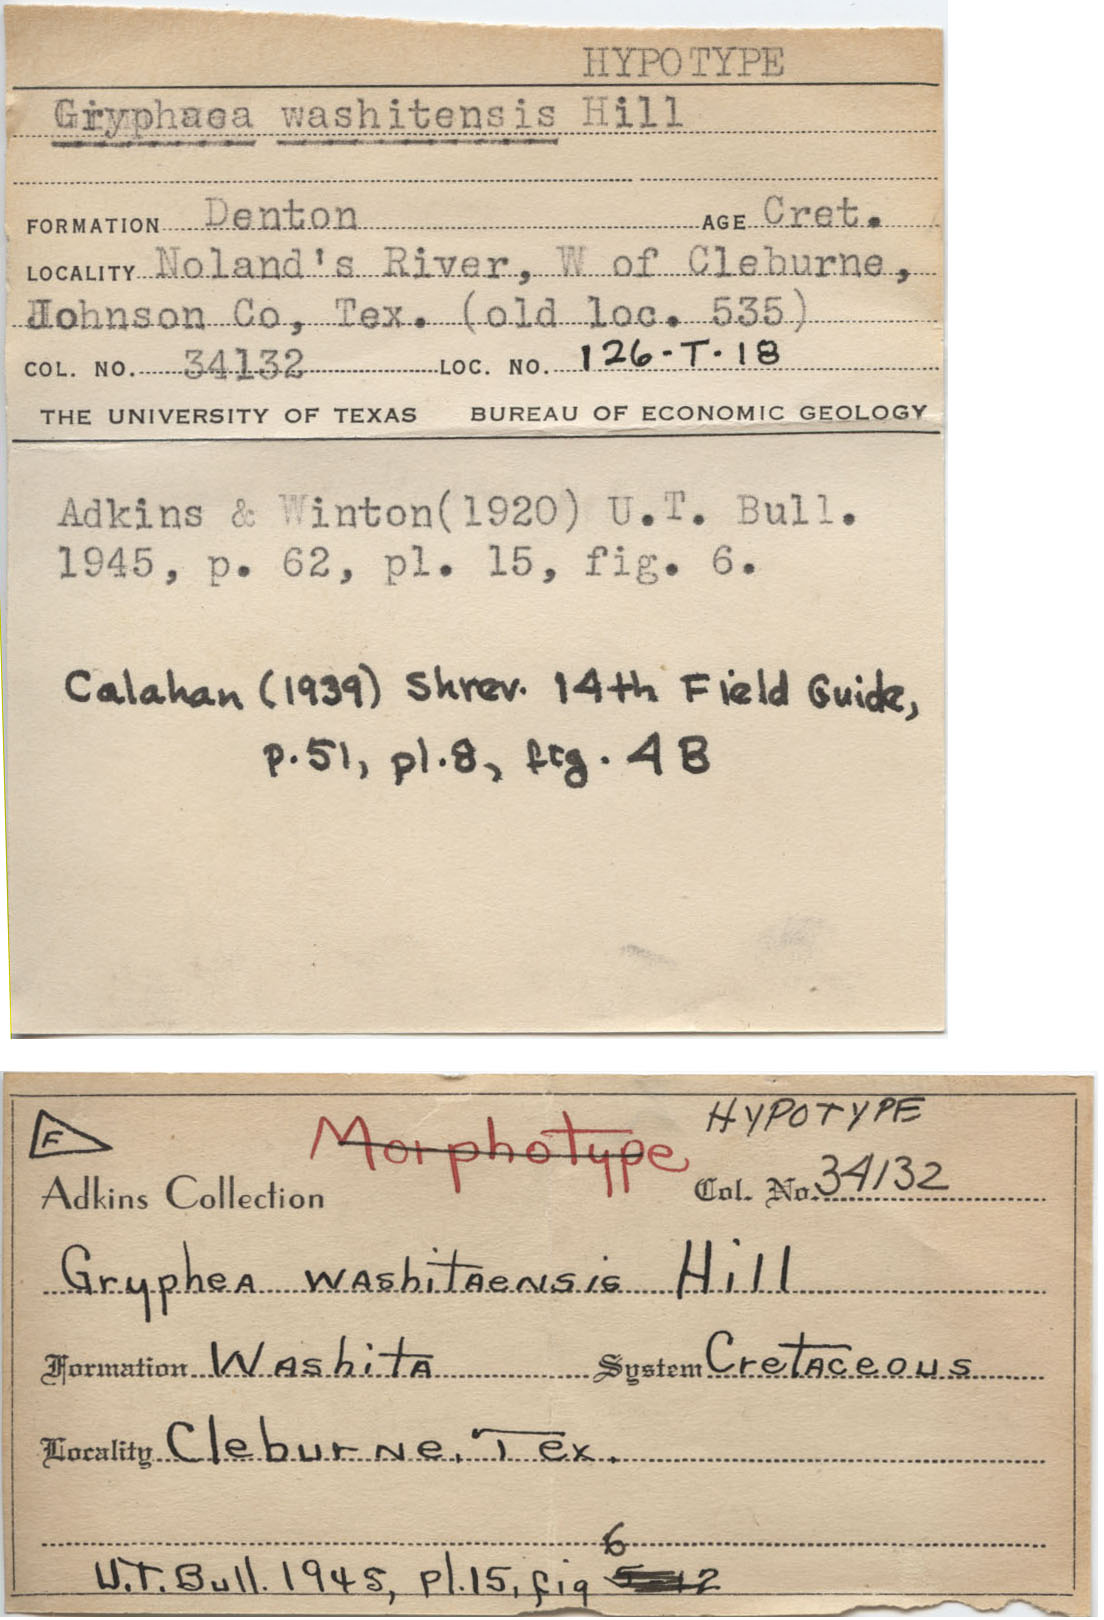 HYPOTYPE
Gryphaea washitensis Hill
FORMATION Denton AGE Cret.
LOCALITY Noland's River, W of Cleburne,
Johnson Co, Tex. (old loc. 535)
COL. NO. 34132 LOC. NO. 126-T-18
THE UNIVERSITY OF TEXAS BUREAU OF ECONOMIC GEOLOGY
Adkins & Winton(1920) U.T. Bull.
1945, p. 62, pl. 15, fig. 6.
Calahan (1939) Shrev. 14th Field Guide,
p.51, pl.8, fig. 4B
F
Morphotype
HYPOTYPE
Adkins Collection
Col. No. 34132
Gryphea washitaensis Hill
Formation Washita System Cretaceous
Locality Cleburne, Tex.
6
U.T. Bull. 1945, pl.15, fig